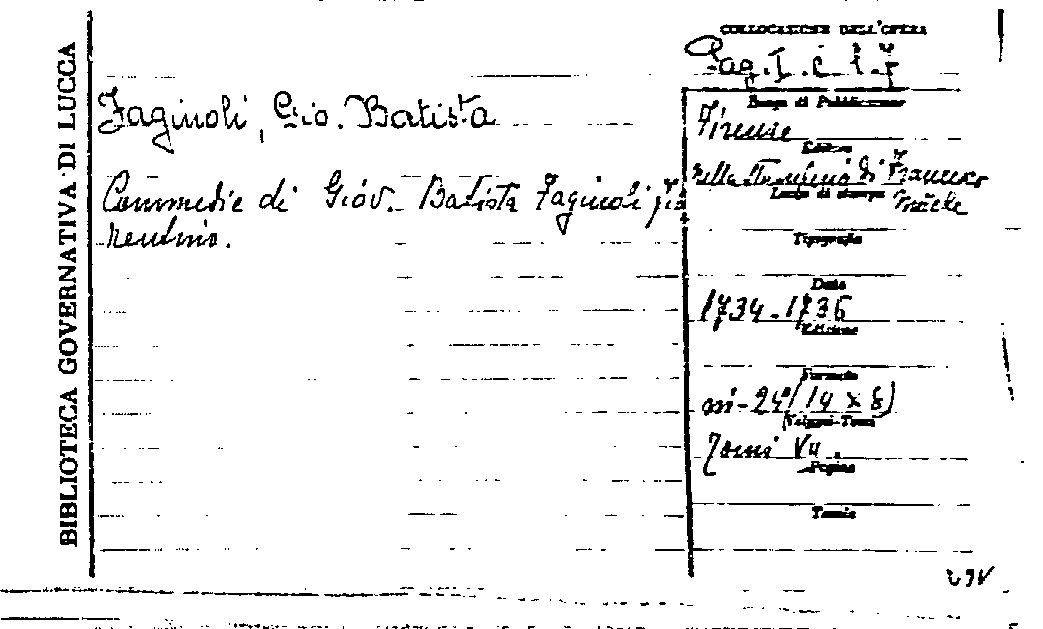 BIBLIOTECA GOVERNATIVA DI LUCCA
COLLOCAZIONE DELL'OPERA
Pag. I. c
Faginoli, Gio. Batista
Commedie di Giov. Batista Faginoli fio
rentino.
Luogo di Pubblicazione
Firenze
Editore
nella Stamperia di Francesco
Luogo di stampa
Tipografia
Data
1734-1736
Edizione
Formato
in-24° (14 x 8)
Volumi-Tomi
Tomi
Pagine
Tavole